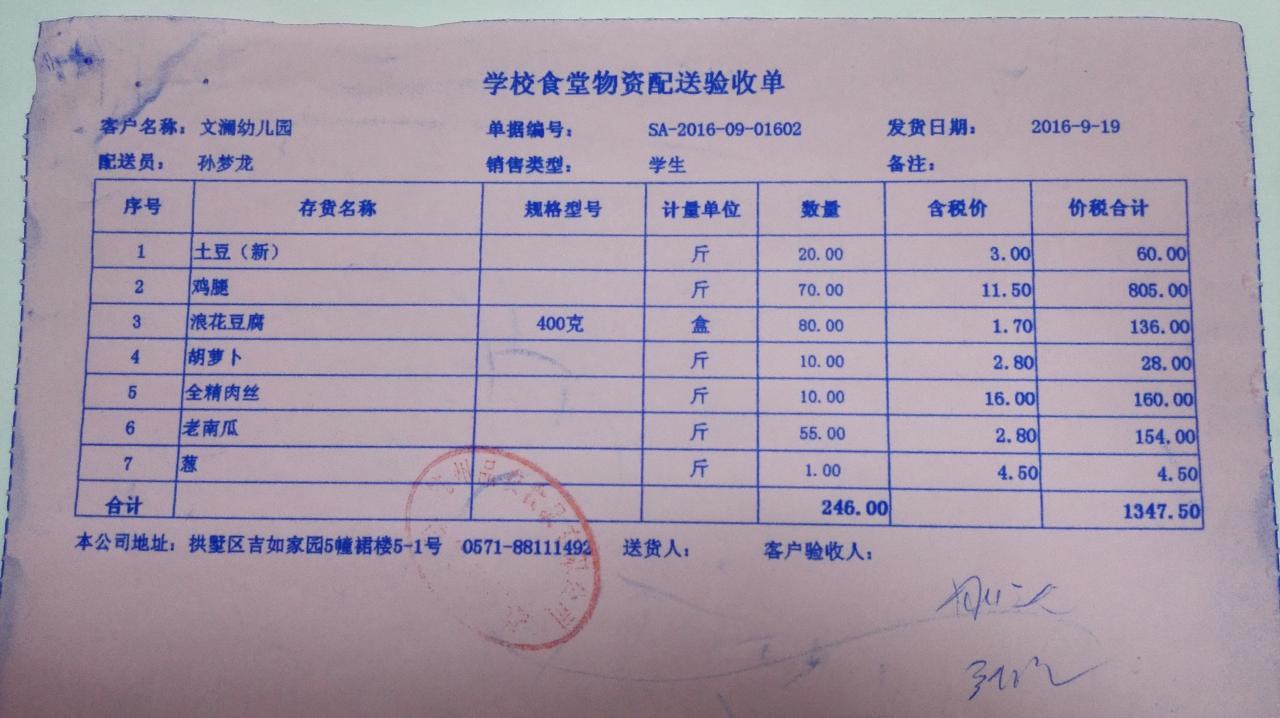 学校食堂物资配送验收单
客户名称：文澜幼儿园 单据编号： SA-2016-09-01602 发货日期： 2016-9-19
配送员： 孙梦龙 销售类型： 学生 备注：
序号 存货名称 规格型号 计量单位 数量 含税价 价税合计
1 土豆（新） 斤 20.00 3.00 60.00
2 鸡腿 斤 70.00 11.50 805.00
3 浪花豆腐 400克 盒 80.00 1.70 136.00
4 胡萝卜 斤 10.00 2.80 28.00
5 全精肉丝 斤 10.00 16.00 160.00
6 老南瓜 斤 55.00 2.80 154.00
7 葱 斤 1.00 4.50 4.50
合计 246.00 1347.50
本公司地址：拱墅区吉如家园5幢裙楼5-1号 0571-88111492 送货人： 客户验收人：